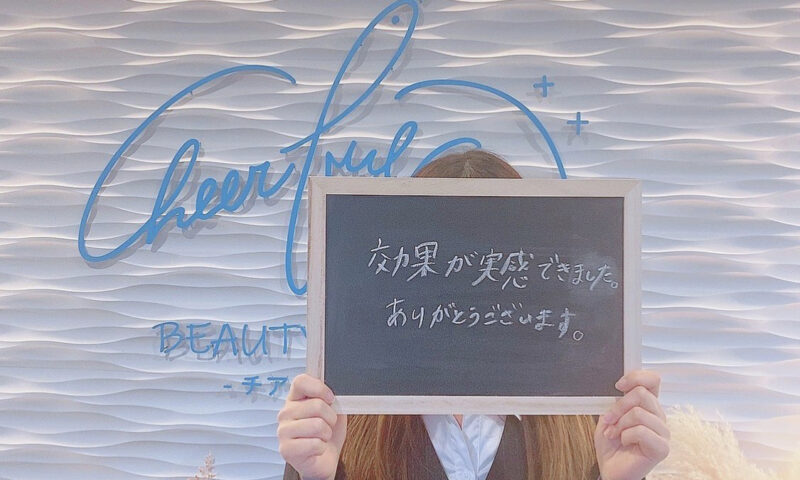 Cheer
BEAUTY
- チア
効果が実感できました。
ありがとうございます。